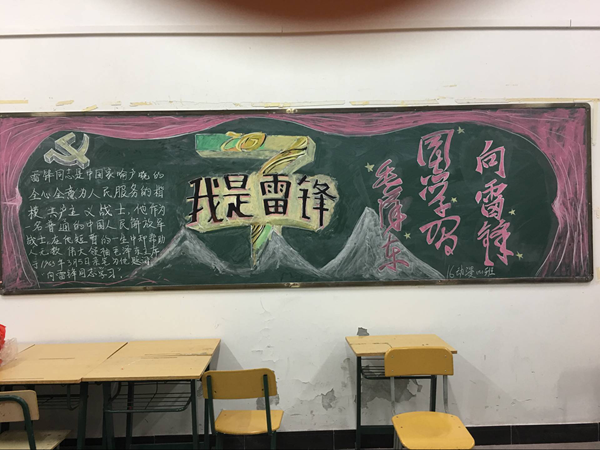 雷锋同志是中国家喻户晓的
全心全意为人民服务的楷
模,共产主义战士,他作为
一名普通的中国人民解放军
战士,在他短暂的一生中却帮助
人无数。伟大领袖毛泽东主席
于1963年3月5日亲笔为他题词:
向雷锋同志学习!
我是雷锋
向雷锋
同志学习
毛泽东
16动漫 班